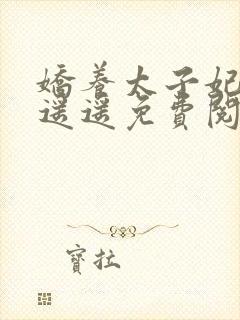 嬌養太子妃
遥遥免費閱
寶拉